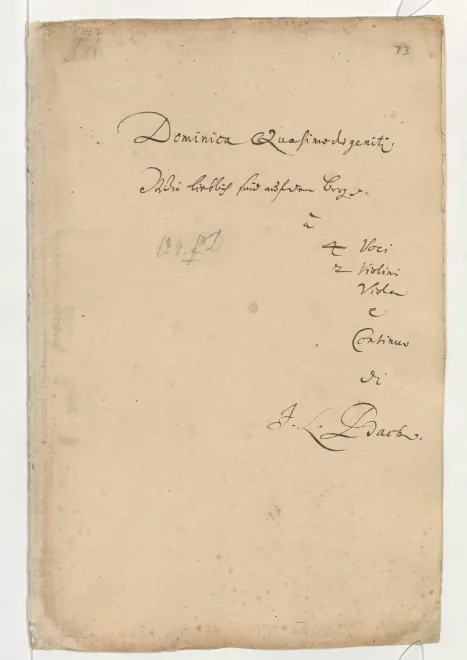 73
Dominica Quasimodogeniti.
Wie lieblich sind auf den Berge.
à
4 Voci
2 Violini
Viola
e
Continuo
di
J. L. Bach.